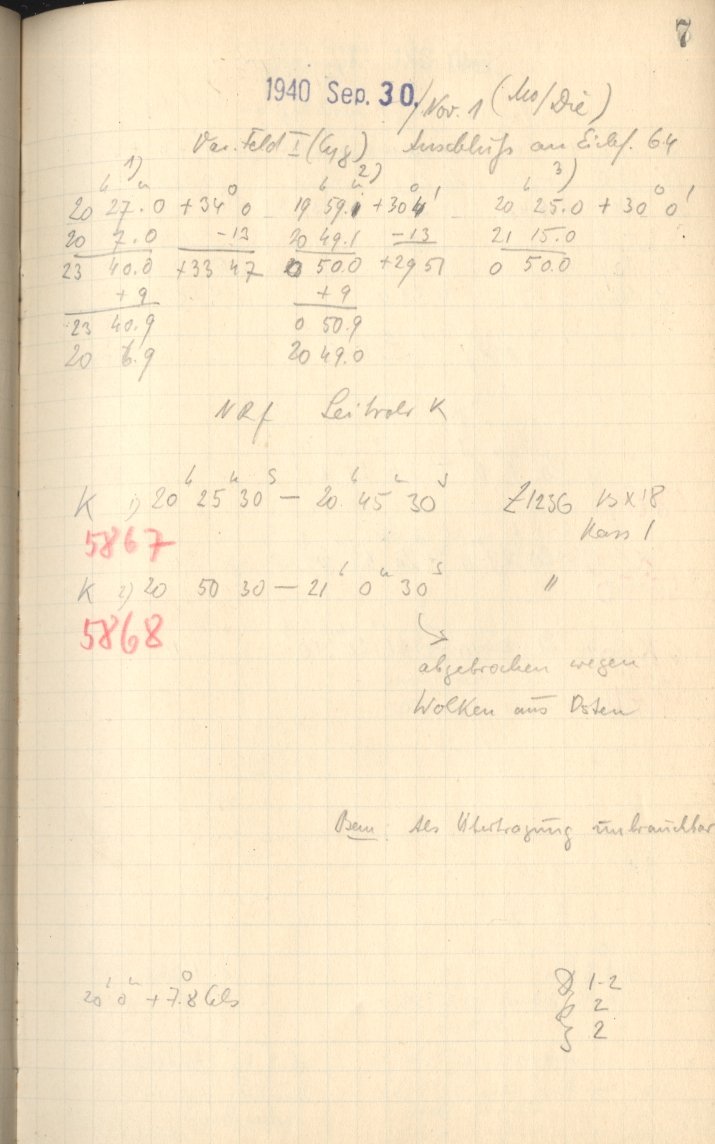 7
1940 Sep. 30./Nov. 1 (Mo/Die)
Var. Feld I (Cyg) Anschluß an Eichf. 64
1) 2) 3)
20 h 27.0 m +34° 0 19 h 59.1 m +30° 4' 20 h 25.0 + 30° 0'
20 7.0 -13 20 49.1 -13 21 15.0
23 40.0 +33 47 0 50.0 +29 51 0 50.0
+9 +9
23 40.9 0 50.9
20 6.9 20 49.0
NRf Leitrohr K
K 1) 20 h 25 m 30 s — 20 h 45 m 30 s Z1236 13 x 18
Kass 1
5867
K 2) 20 50 30 — 21 h 0 m 30 s "
5868
abgebrochen wegen
Wolken aus Osten
Bem: Als Übertragung unbrauchbar
20 h 0 m +7.8° Cels
1-2
2
2